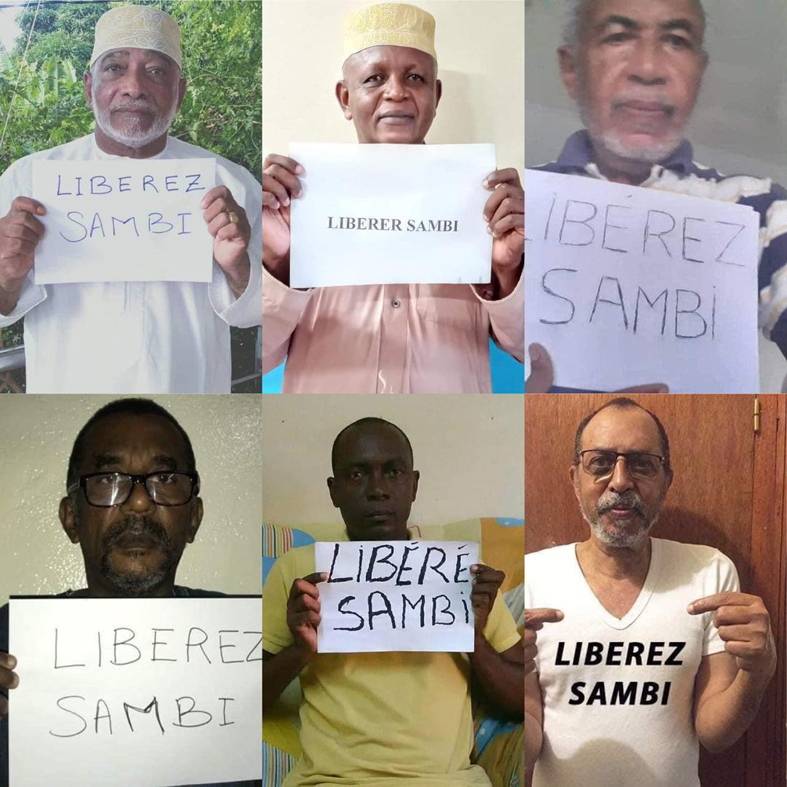 LIBEREZ
SAMBI
LIBERER SAMBI
LIBÉREZ
SAMBI
LIBEREZ
SAMBI
LIBÉRÉ
SAMBI
LIBEREZ
SAMBI